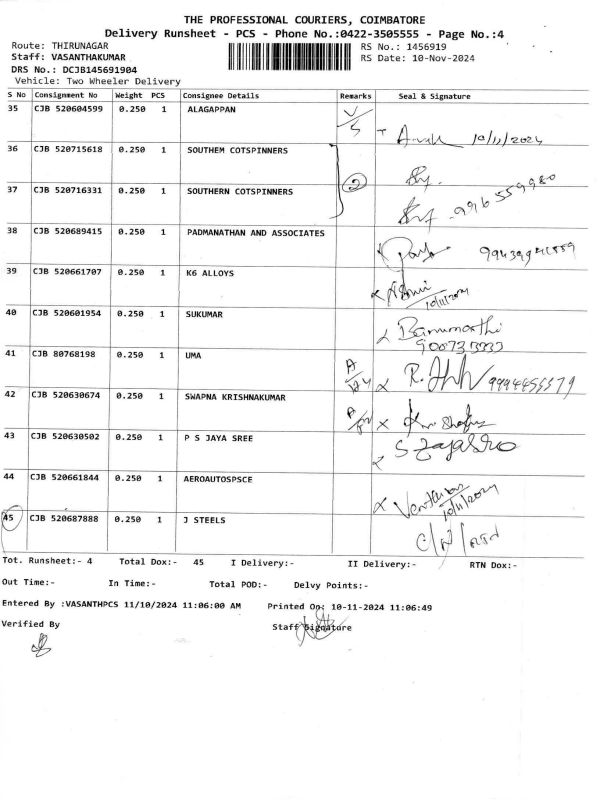 THE PROFESSIONAL COURIERS, COIMBATORE
Delivery Runsheet - PCS - Phone No.:0422-3505555 - Page No.:4
Route: THIRUNAGAR RS No.: 1456919
Staff: VASANTHAKUMAR RS Date: 10-Nov-2024
DRS No.: DCJB145691904
Vehicle: Two Wheeler Delivery
S No Consignment No Weight PCS Consignee Details Remarks Seal & Signature
35 CJB 520604599 0.250 1 ALAGAPPAN 10/11/2024
36 CJB 520715618 0.250 1 SOUTHEM COTSPINNERS
37 CJB 520716331 0.250 1 SOUTHERN COTSPINNERS 2
38 CJB 520689415 0.250 1 PADMANATHAN AND ASSOCIATES
39 CJB 520661707 0.250 1 K6 ALLOYS 10/11/2024
40 CJB 520601954 0.250 1 SUKUMAR
41 CJB 80768198 0.250 1 UMA
42 CJB 520630674 0.250 1 SWAPNA KRISHNAKUMAR
43 CJB 520630502 0.250 1 P S JAYA SREE
44 CJB 520661844 0.250 1 AEROAUTOSPSCE 10/11/2024
45 CJB 520687888 0.250 1 J STEELS
Tot. Runsheet:- 4 Total Dox:- 45 I Delivery:- II Delivery:- RTN Dox:-
Out Time:- In Time:- Total POD:- Delvy Points:-
Entered By :VASANTHPCS 11/10/2024 11:06:00 AM Printed On: 10-11-2024 11:06:49
Verified By Staff Signature